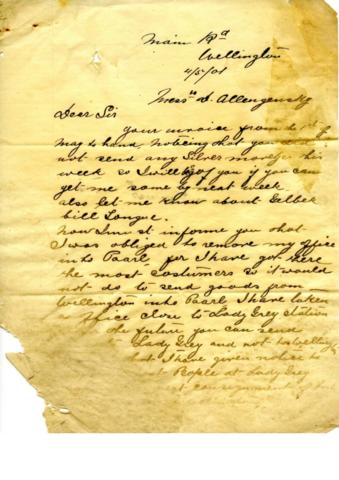 Main Rd
Wellington
4/5/01
Mess
Dear Sir
your invoice from the 1st of
May to hand. Noticing that you
not send any Silver this
week so I will beg of you if you can
get me some by next week
also let me know about
bill Tongue.
Now I must informe you that
I was obliged to remove my office
into Paarl, for I have got here
the most costumers so it would
not do to send goods from
Wellington into Paarl, I have taken
office close to Lady Grey station
the future you can send
to Lady Grey and not to Welling
that I have given notice to
People at Lady Grey
consignment